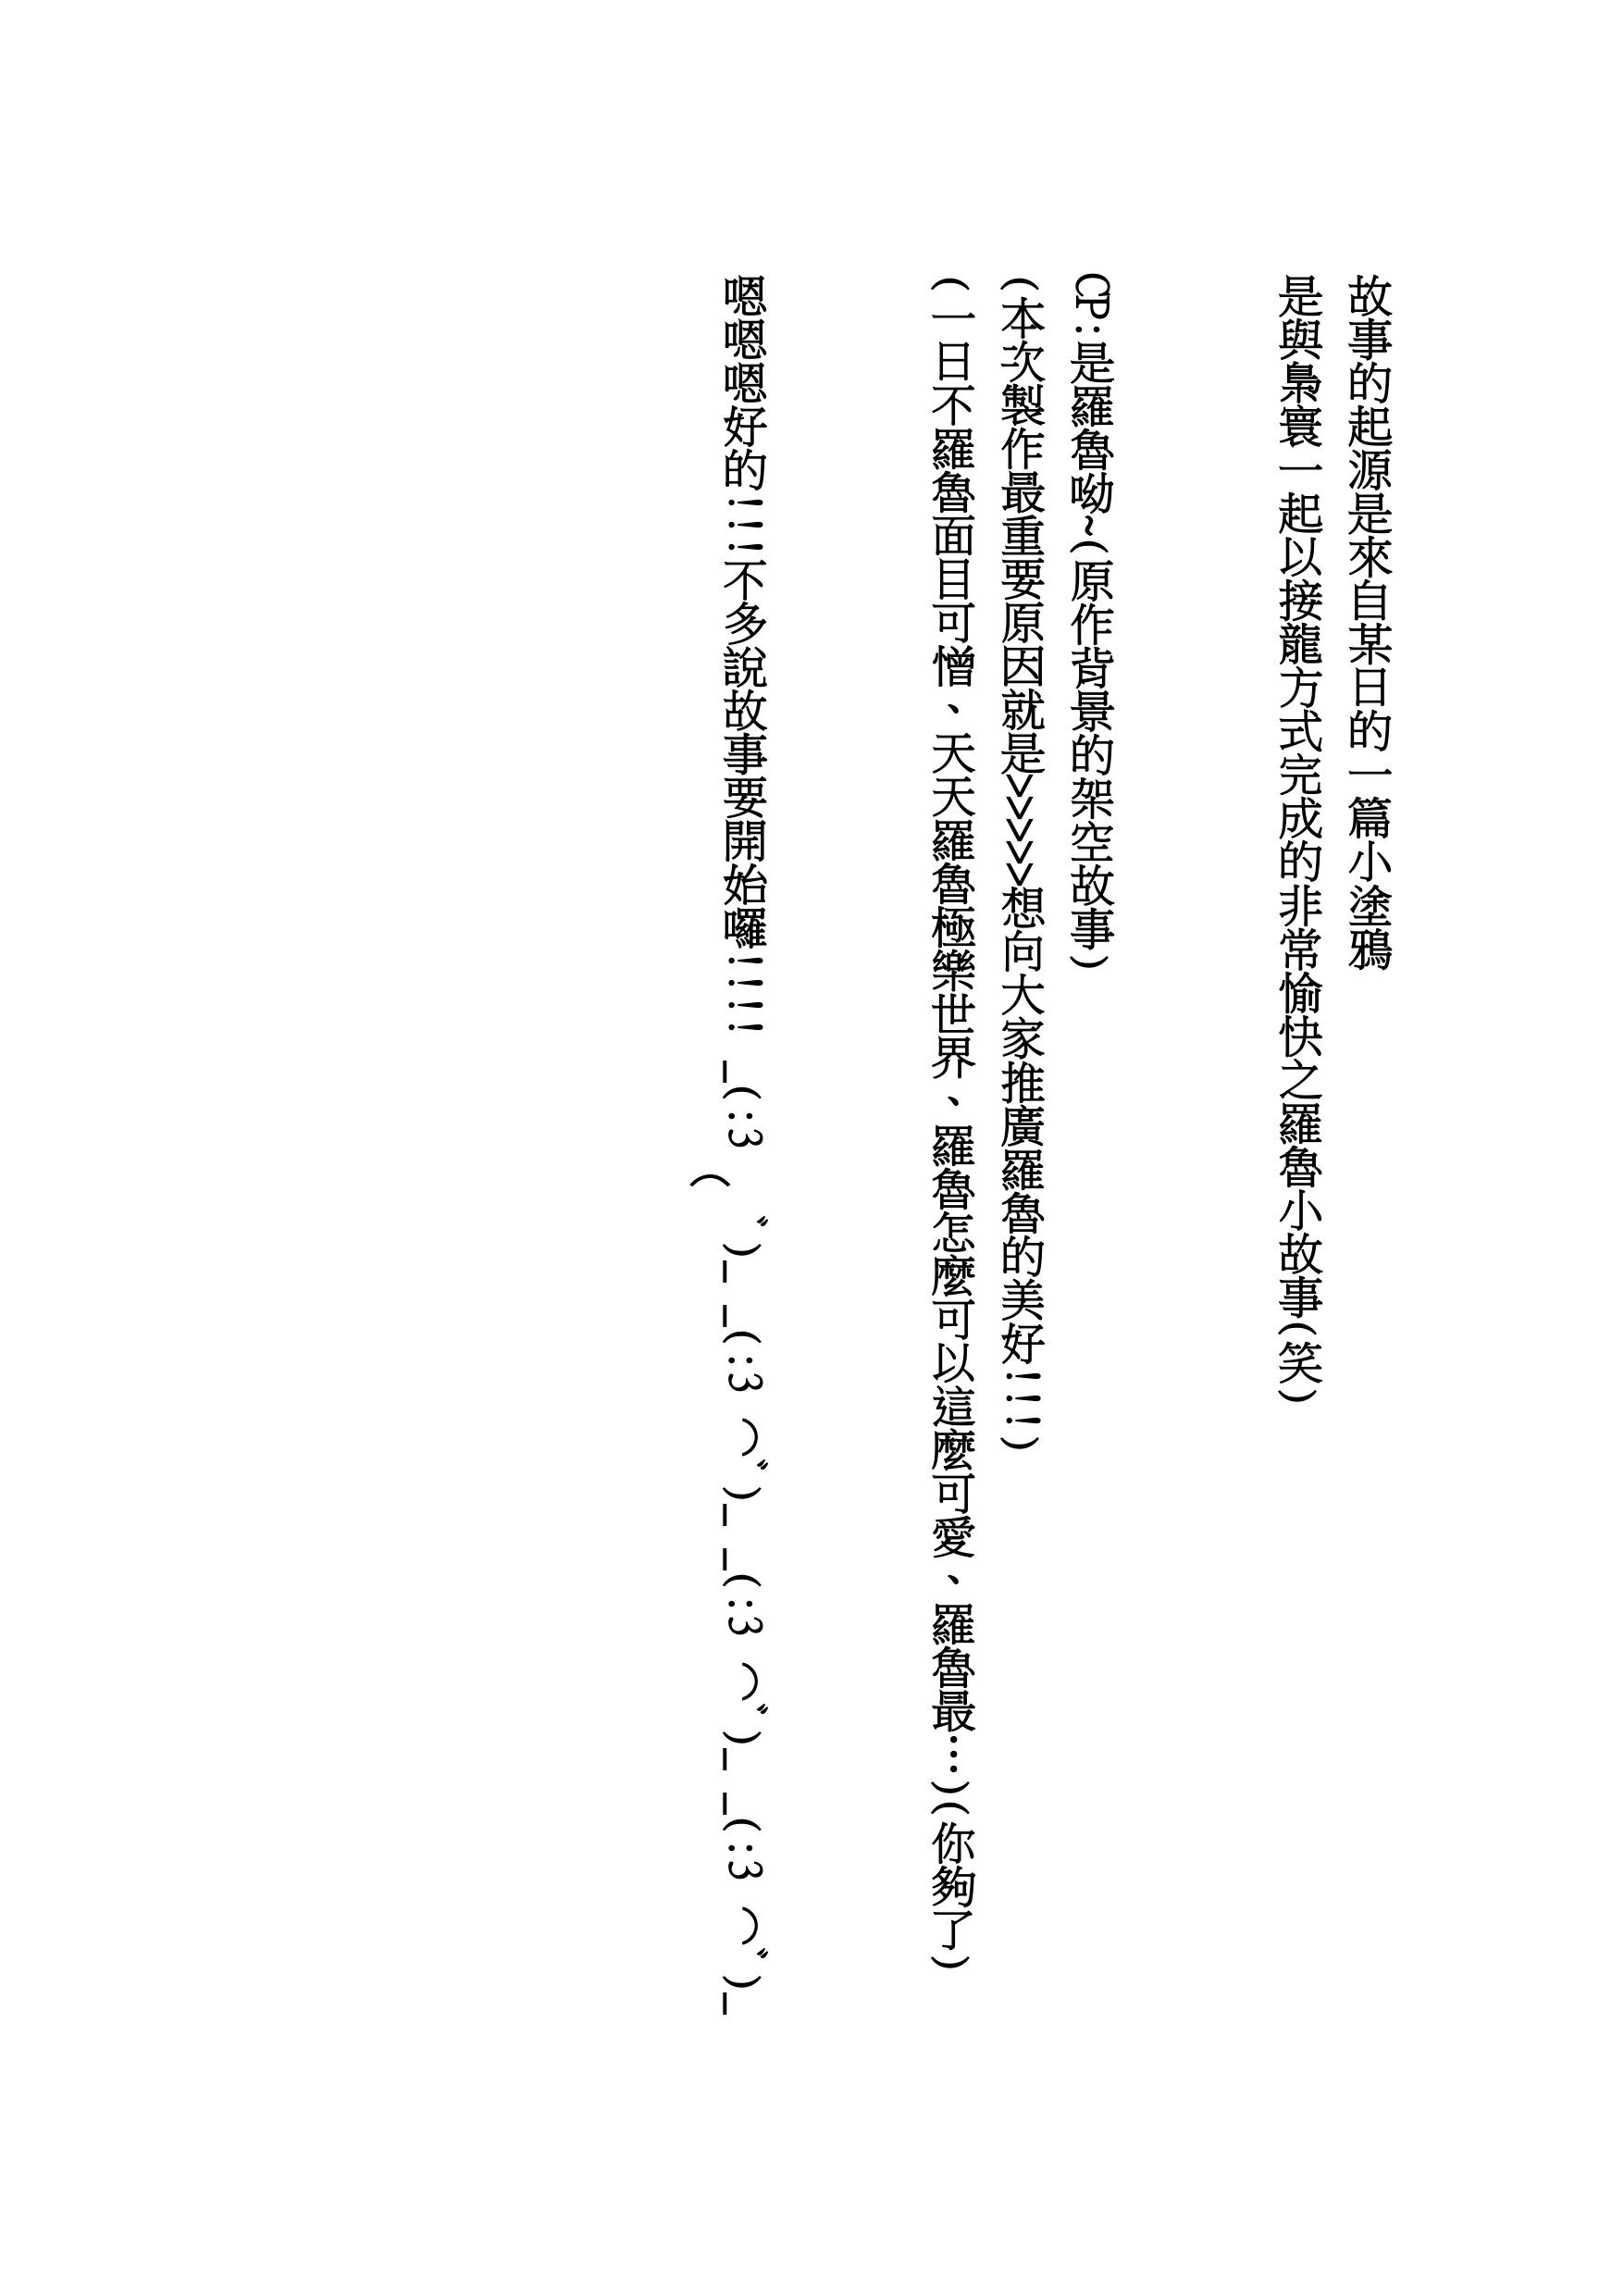 故事的起源是來自某日的一篇小塗鴉
是與梟寰一起以接龍方式完成的非常愉快之羅魯小故事(笑)
CP:是羅魯呦~(原作背景的架空故事)
(本次製作最重要原因就是>>>>>想向大家推廣羅魯的美好!!!)
(一日不羅魯面目可憎、天天羅魯極樂世界、羅魯怎麼可以這麼可愛、羅魯最…)(你夠了)
嗯嗯嗯好的!!!不多說故事要開始囉!!!! _(:3 ⌒゙)_ _(:3 ⌒゙)_ _(:3 ⌒゙)_ _(:3 ⌒゙)_